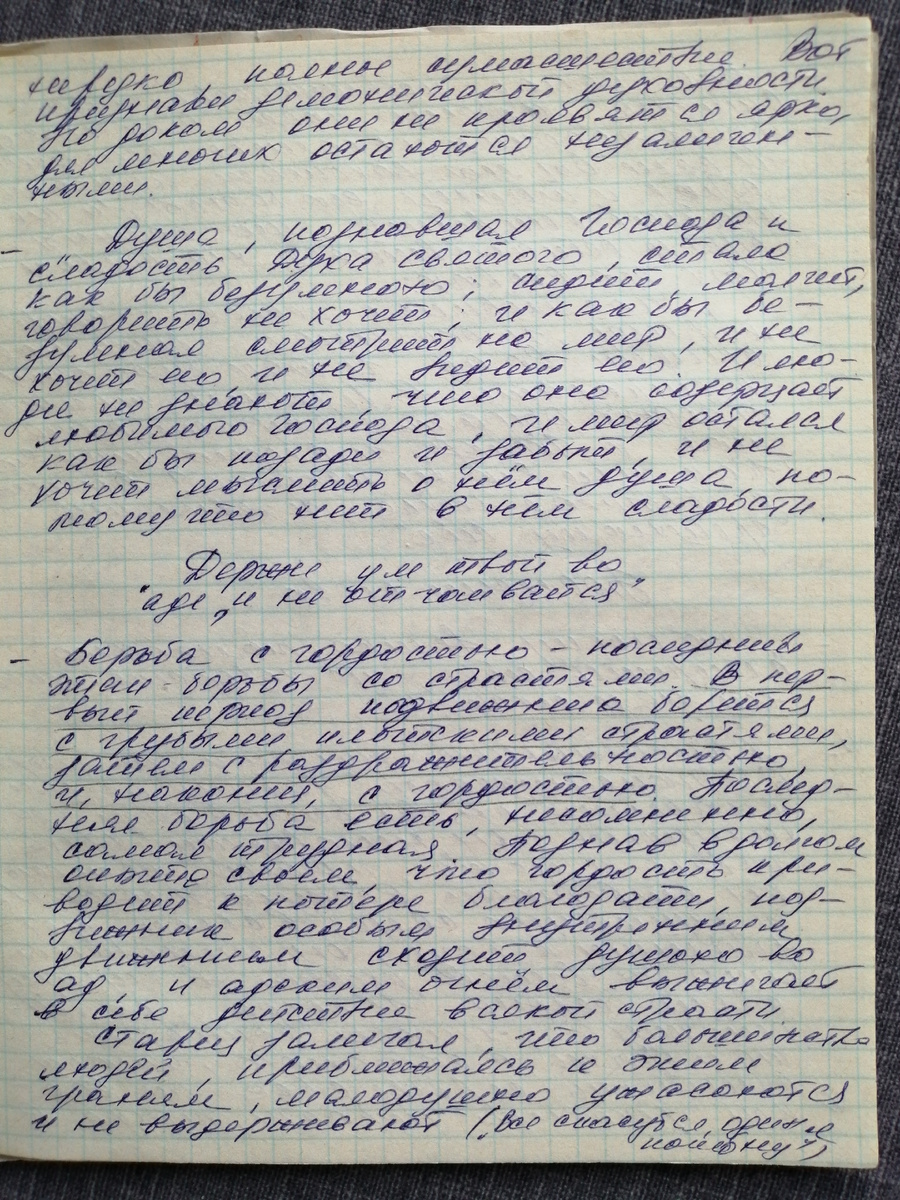 нередко полное сумасшествие. Вот
признаки демонической духовности
Но доколе они не проявятся ярко,
для многих остаются незамечен-
ными.
- Душа, познавшая Господа и
сладость Духа святого, стала
как бы безумною; сидит, молчит,
говорить не хочет; и как бы бе-
зумная смотрит на мир, и не
хочет его, и не видит его. И лю-
ди не знают, что она созерцает
любимого Господа, и мир остался
как бы позади и забыт, и не
хочет мыслить о нём душа, по-
тому что нет в нём сладости.
Держи ум твой во
"аде, и не отчаивайся"
- Борьба с гордостью - последний
этап борьбы со страстями. В пер-
вый период подвижник борется
с грубыми плотскими страстями,
затем с раздражительностью,
и, наконец, с гордостью. Послед-
няя борьба есть, несомненно,
самая трудная. Познав в долгом
опыте своем, что гордость при-
водит к потере благодати, под-
вижник особым внутренним
движением сходит душою во
ад, и адским огнём выжигает
в себе действие всякой страсти
Старец замечал, что большинство
людей, приближаясь к этим
граням, малодушно ужасаются
и не выдерживают („Все спасутся, один я
погибну"),